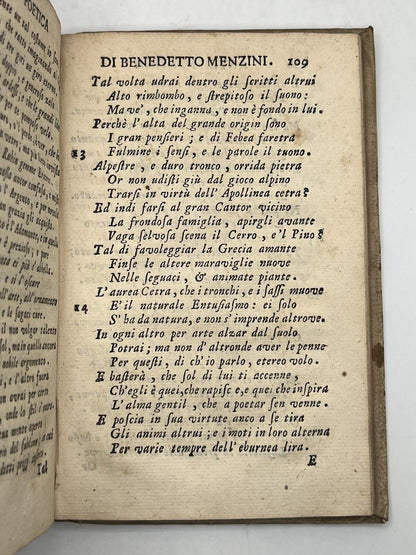 POETICA
DI BENEDETTO MENZINI. 109
Tal volta udrai dentro gli scritti altrui
Alto rimbombo, e strepitoso il suono:
Ma ve', che inganna, e non è fondo in lui.
Perchè l'alta del grande origin sono
I gran pensieri; e di Febea faretra
13 Fulmine i sensi, e le parole il tuono.
Alpestre, e duro tronco, orrida pietra
Or non udisti già dal gioco alpino
Trarsi in virtù dell' Apollinea cetra?
Ed indi farsi al gran Cantor vicino
La frondosa famiglia, apirgli avante
Vaga selvosa scena il Cerro, e'l Pino?
Tal di favoleggiar la Grecia amante
Finse le altere maraviglie nuove
Nelle seguaci, & animate piante.
L'aurea Cetra, che i tronchi, e i sassi muove
14 E'il naturale Entusiasmo: ei solo
S' ha da natura, e non s'imprende altrove.
In ogni altro per arte alzar dal suolo
Potrai; ma non d'altronde aver le penne
Per questi, di ch'io parlo, etereo volo.
E basterà, che sol di lui ti accenne,
Ch'egli è quei, che rapisce, e que, che inspira
L'alma gentil, che a poetar sen venne.
E poscia in sua virtute anco a se tira
Gli animi altrui; e i moti in loro alterna
Per varie tempre dell'eburnea lira.
E